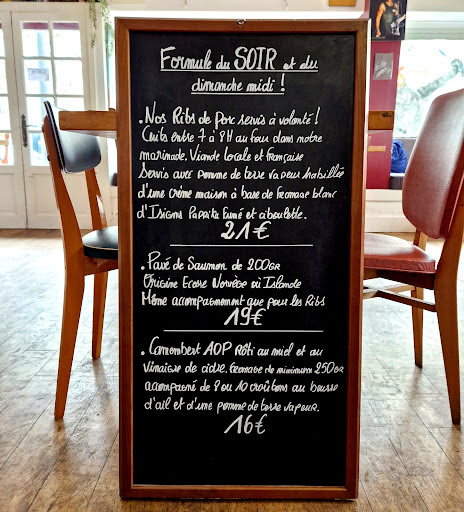 Formule du SOIR et du
dimanche midi !
. Nos Ribs de Porc servis à volonté !
Cuits entre 7 à 8H au four dans notre
marinade. Viande locale et française
Servis avec pomme de terre vapeur habillée
d'une crème maison à base de fromage blanc
d'Isigny Paprika fumé et ciboulette.
21€
. Pavé de Saumon de 200GR
Origine Ecosse Norvège où Islande
Même accompagnement que pour les Ribs
19€
. Camembert AOP Rôti au miel et au
Vinaigre de cidre. Fromage de minimum 250GR
accompagné de 8 ou 10 croûtons au beurre
d'ail et d'une pomme de terre vapeur.
16€